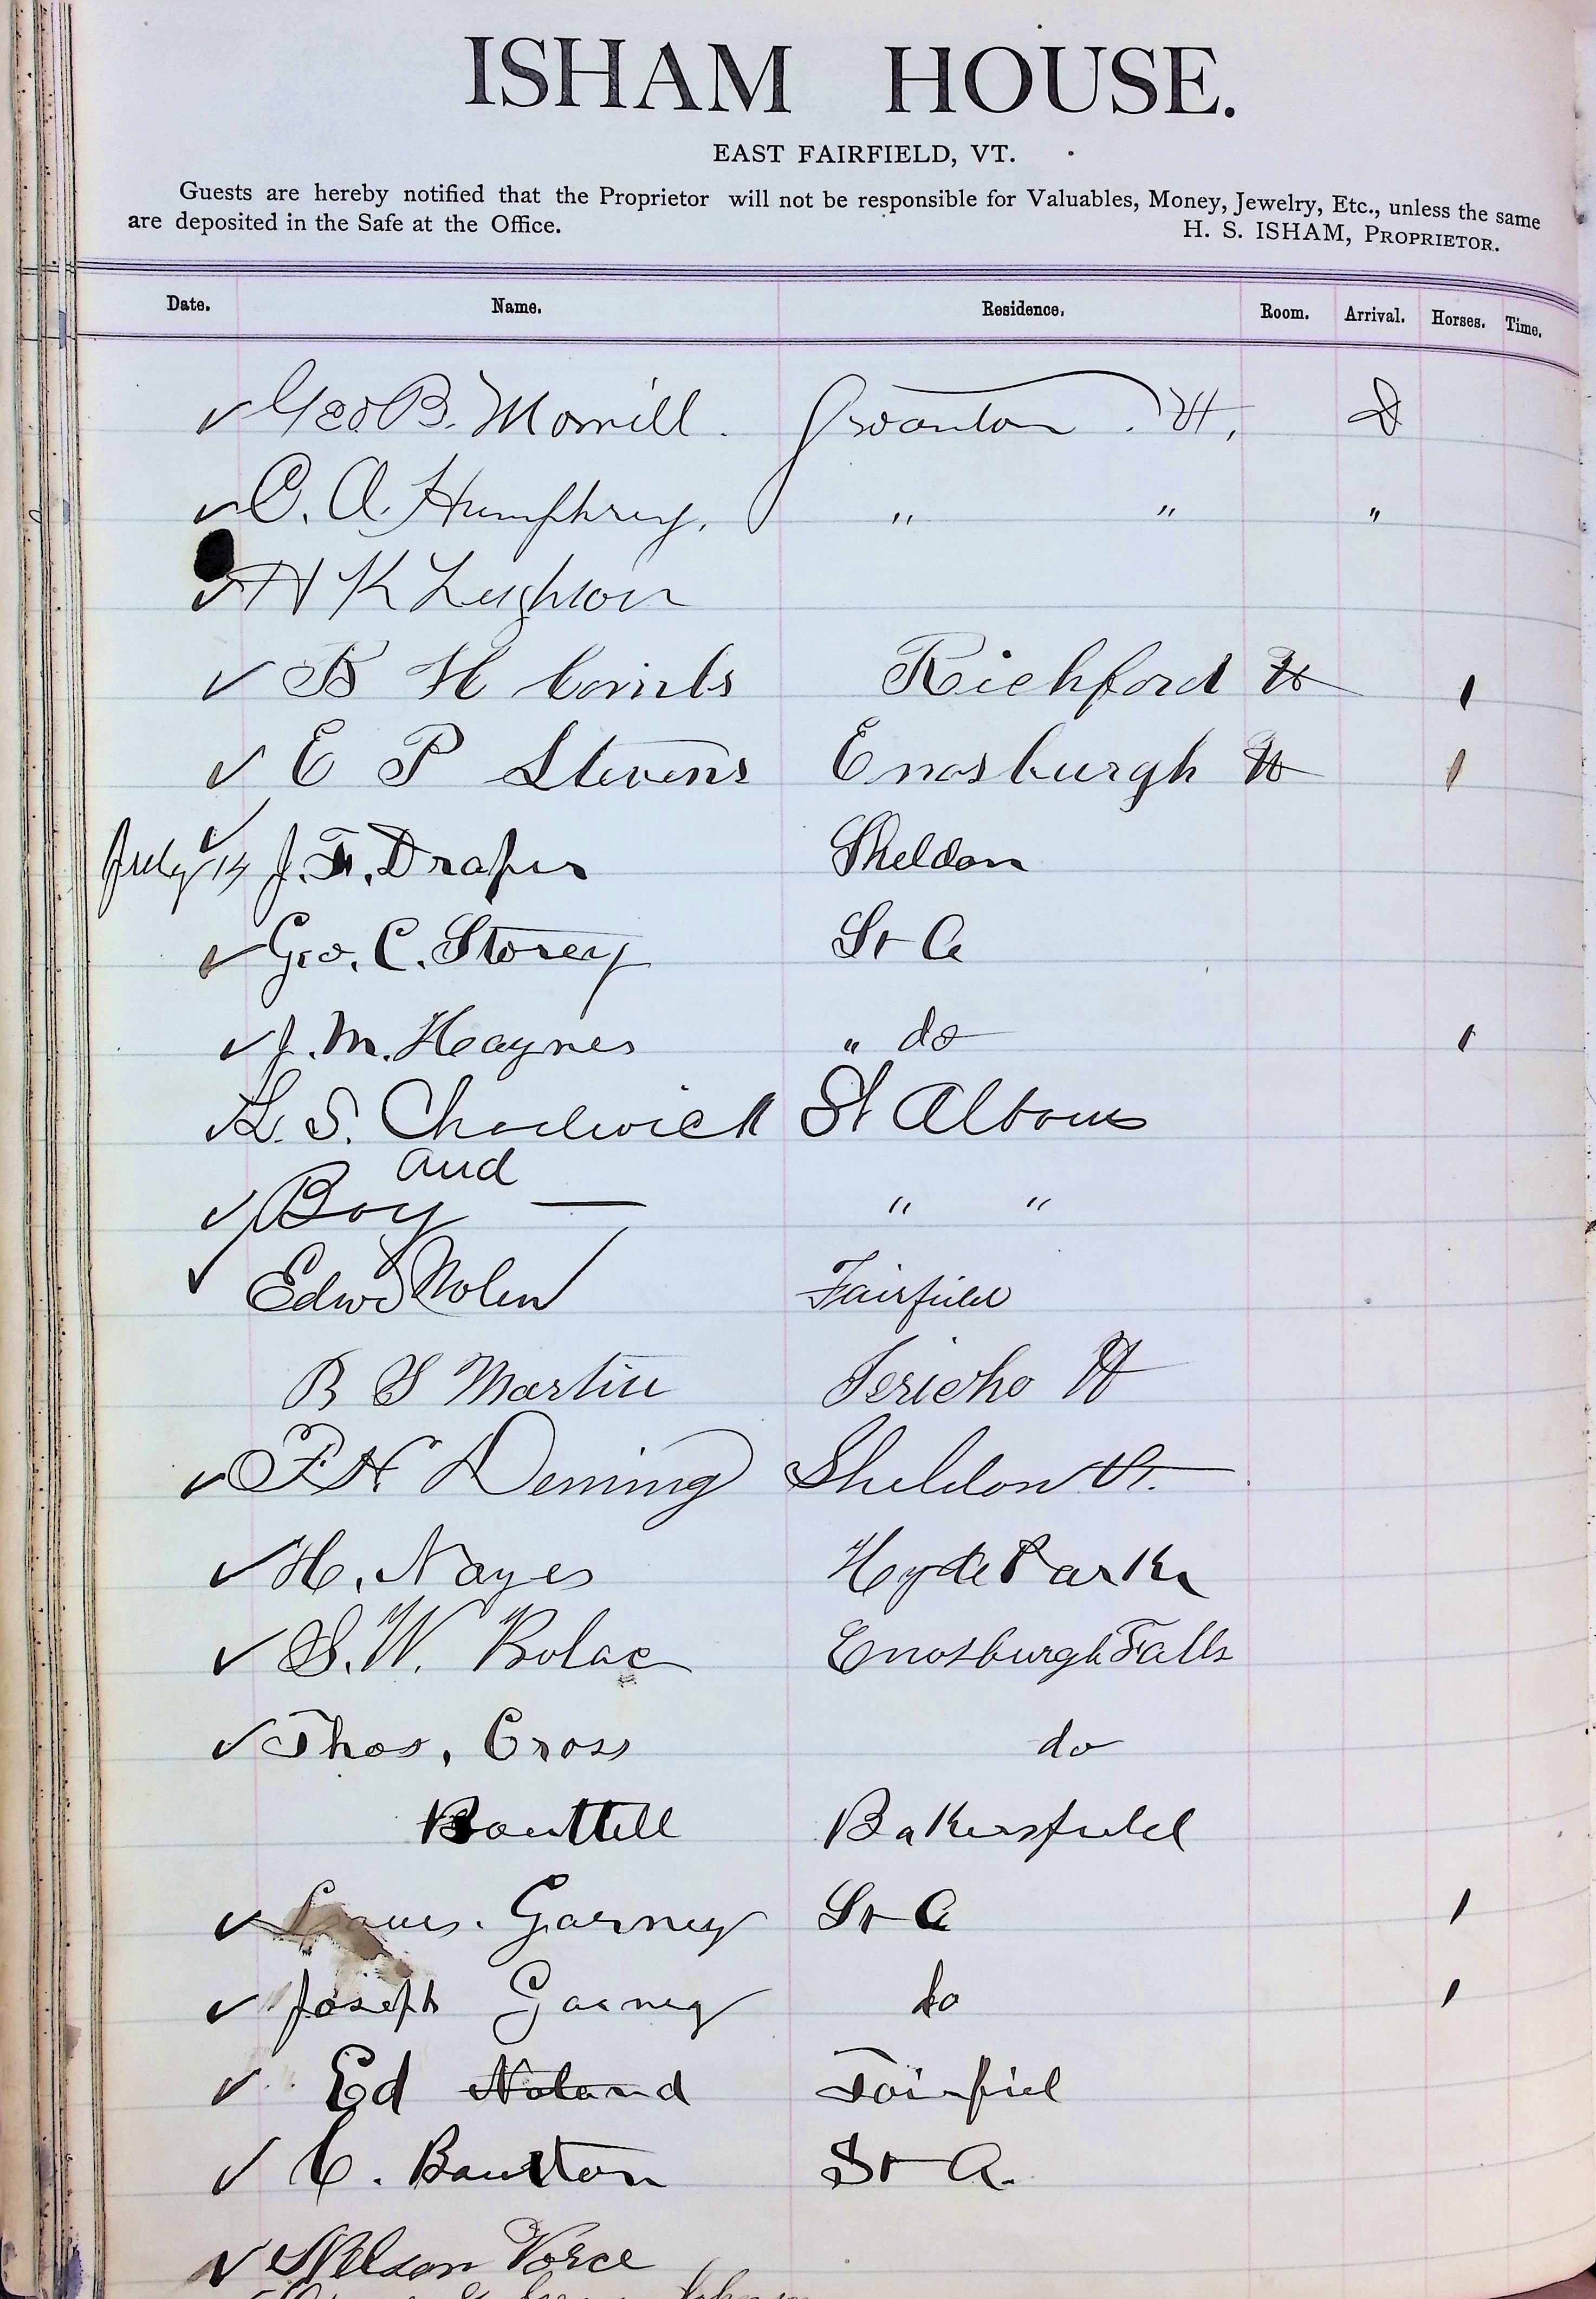 ISHAM HOUSE.
EAST FAIRFIELD, VT.
Guests are hereby notified that the Proprietor will not be responsible for Valuables, Money, Jewelry, Etc., unless the same
are deposited in the Safe at the Office. H. S. ISHAM, PROPRIETOR.
Date. Name. Residence. Room. Arrival. Horses. Time.
✓ Geo. B. Morrill. Swanton. Vt,
✓ C. A. Humphrey, " " "
✓ H K Leighton
✓ B H Combs Richford Vt 1
✓ E P Stevens Enosburgh Vt 1
July 14 ✓ J. F. Draper Sheldon
✓ Geo. C. Storey St A
✓ J. M. Haynes " do 1
S. Chadwick St Albans
and
✓ Boy — " "
✓ Edwd Nolen Fairfield
B S Martin Jericho Vt
✓ F. N Deming Sheldon Vt.
✓ H. Noyes Hyde Park
✓ S. W. Bolac Enosburgh Falls
✓ Thos. Cross do
Bouttell Bakersfield
✓ Garney St A 1
✓ Joseph Garney do 1
✓ Ed Noland Fairfiel
✓ C. Bourton St A.
✓ Nelson Vorce